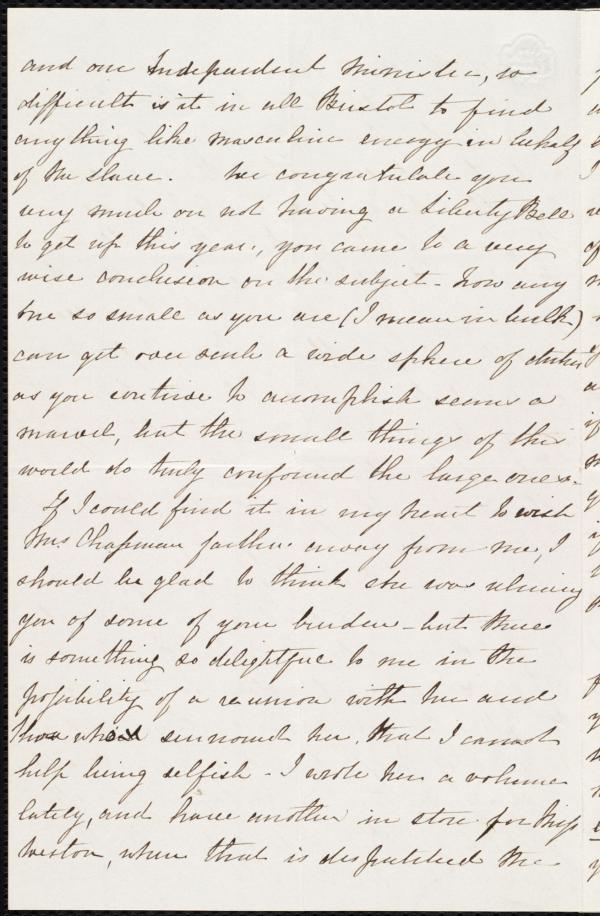 and one Independent Minister, so
difficult is it in all Bristol to find
anything like masculine energy in behalf
of the slave. We congratulate you
very much on not having a Liberty Bell
to get up this year, you came to a very
wise conclusion on the subject - how any
one so small as you are (I mean in bulk)
can get over such a wide sphere of duties
as you contrive to accomplish seems a
marvel, but the small things of this
world do truly confound the large ones.
If I could find it in my heart to wish
Mrs. Chapman farther away from me, I
should be glad to think she was relieving
you of some of your burden - but there
is something so delightful to me in the
possibility of a reunion with her and
those who surround her, that I cannot
help being selfish - I wrote her a volume
lately, and have another in store for Miss
Weston, when that is despatched the